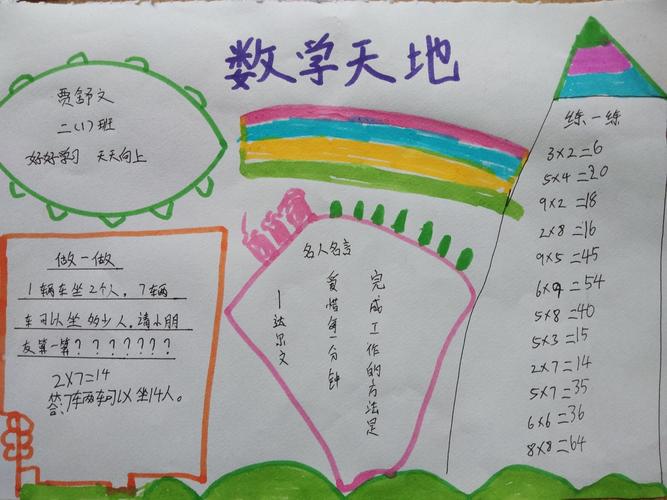 数学天地
贾舒文
二(1)班
好好学习 天天向上
做一做
1辆车坐2人，7辆
车可以坐多少人。请小朋
友算一算？？？？？？？
2×7=14
答:7车两车可以坐14人。
名人名言
完成工作的方法是
爱惜每一分钟
—达尔文
练一练
3×2=6
5×4=20
9×2=18
2×8=16
9×5=45
6×9=54
5×8=40
5×3=15
2×7=14
5×7=35
6×6=36
8×8=64